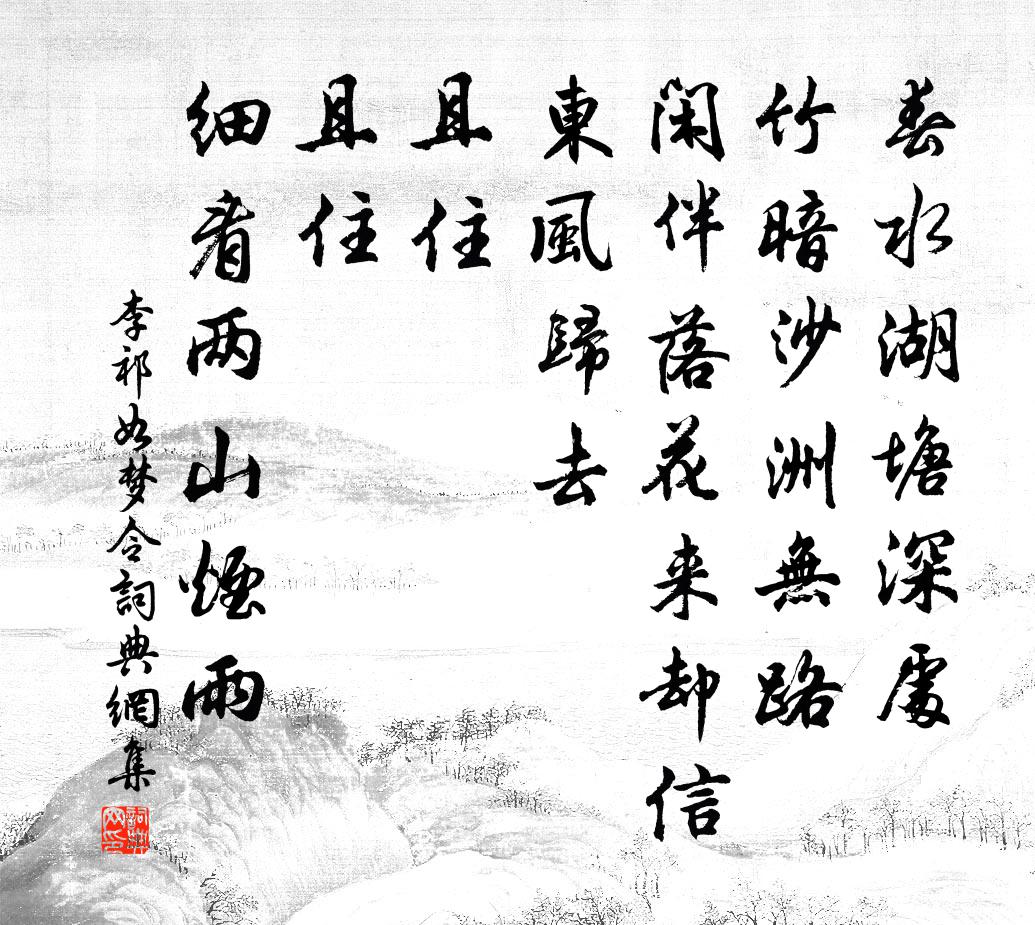 春水湖塘深處
竹暗沙洲無路
閑伴落花来却信
東風歸去
且住
且住
细看两山煙雨
李祁如梦令詞典網集